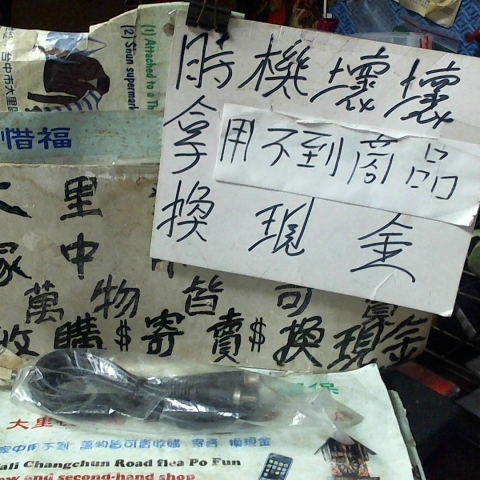 (1) Attached to a Th
(2) Snun supermark
台中市大里
惜福
時機壞壞
拿用不到商品
換現金
大里
家中
萬物皆可賣
收購$寄賣$換現金
大里
保
家中用不到 萬物皆可賣收購 寄賣 換現金
ali Changchun Road flea Po Fun
ow and second-hand shop